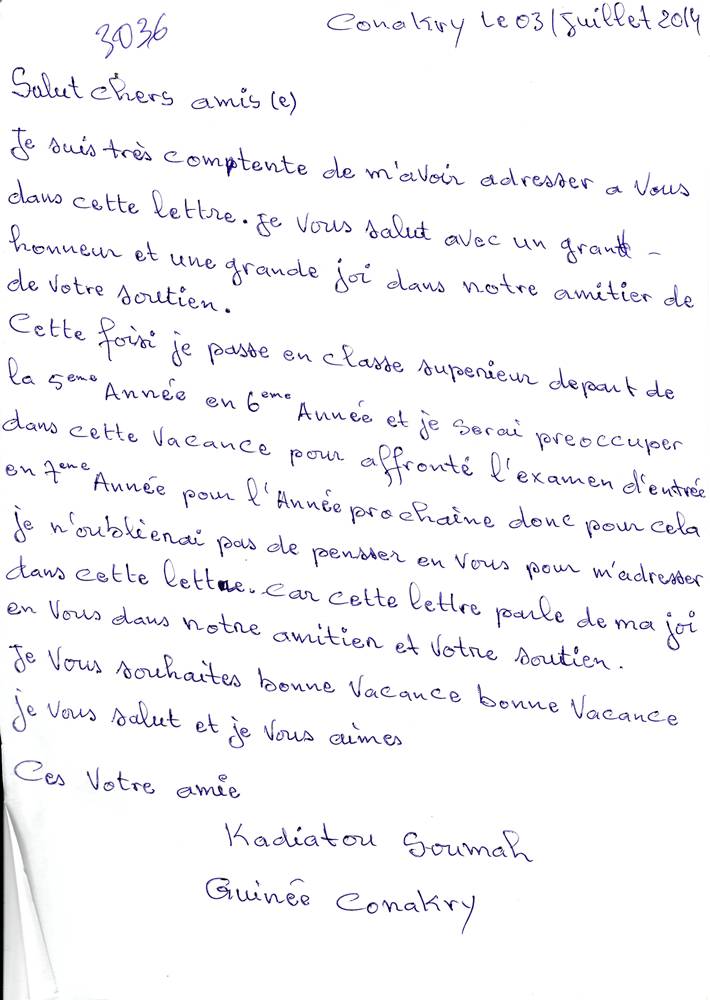 3036
Conakry Le 03/Juillet 2014
Salut chers amis (e)
Je suis très comptente de m'avoir adresser a Vous
dans cette lettre. je Vous salut avec un grand -
honneur et une grande joi dans notre amitier de
de Votre soutien.
Cette foisi je passe en classe superieur depart de
la 5eme Année en 6eme Année et je serai preoccuper
dans cette Vacance pour affronté l'examen d'entrée
en 7eme Année pour l'Année prochaine donc pour cela
je n'oublierai pas de pensser en Vous pour m'adresser
dans cette lettre. Car cette lettre parle de ma joi
en Vous dans notre amitier et Votre soutien.
Je Vous souhaites bonne Vacance bonne Vacance
je Vous salut et je Vous aimes
Ces Votre amie
Kadiatou Soumah
Guinée Conakry